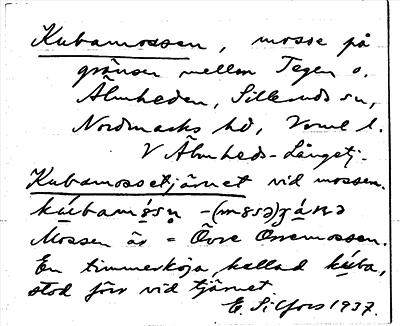 Kubamossen, mosse på
gränsen mellan Tegen o.
Älmheden, Silleruds sn,
Nordmarks hd, Verml l.
V Älmheds-Långetj.
Kubamossetjärnet vid mossen.
Mossen är = Övre Orremossen.
En timmerkoja kallad kúba,
stod förr vid tjärnet.
E. Silfors 1937.